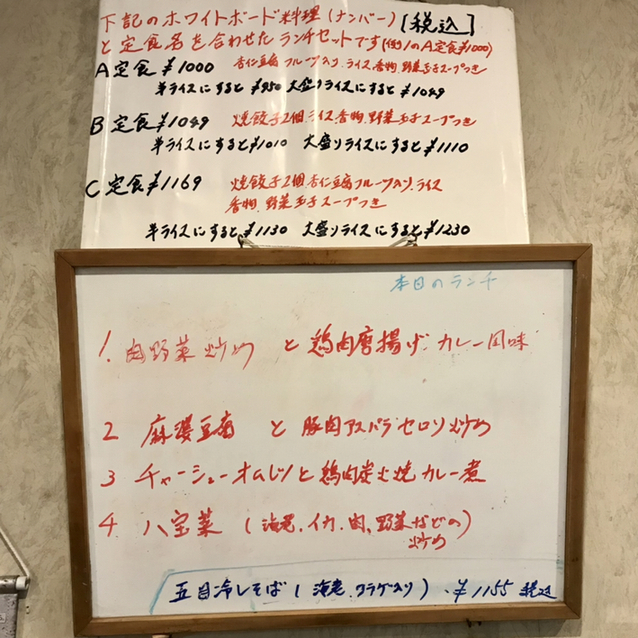 下記のホワイトボード料理(ナンバー)[税込]
と定食名を合わせたランチセットです(例1のA定食¥1000)
A定食¥1000 杏仁豆腐フルーツ入り、ライス、香物、野菜玉子スープつき
半ライスにすると¥950 大盛りライスにすると¥1049
B定食¥1049 焼餃子2個、ライス、香物、野菜玉子スープつき
半ライスにすると¥1010 大盛りライスにすると¥1110
C定食¥1169 焼餃子2個、杏仁豆腐フルーツ入り、ライス
香物、野菜玉子スープつき
半ライスにすると¥1130 大盛りライスにすると¥1230
本日のランチ
1. 肉野菜炒め と 鶏肉唐揚げ カレー風味
2 麻婆豆腐 と 豚肉アスパラセロリ炒め
3 チャーシューオムレツと鶏肉炭火焼カレー煮
4 八宝菜(海老、イカ、肉、野菜などの)
炒め
五目冷しそば(海老、クラゲ入り)、¥1155 税込